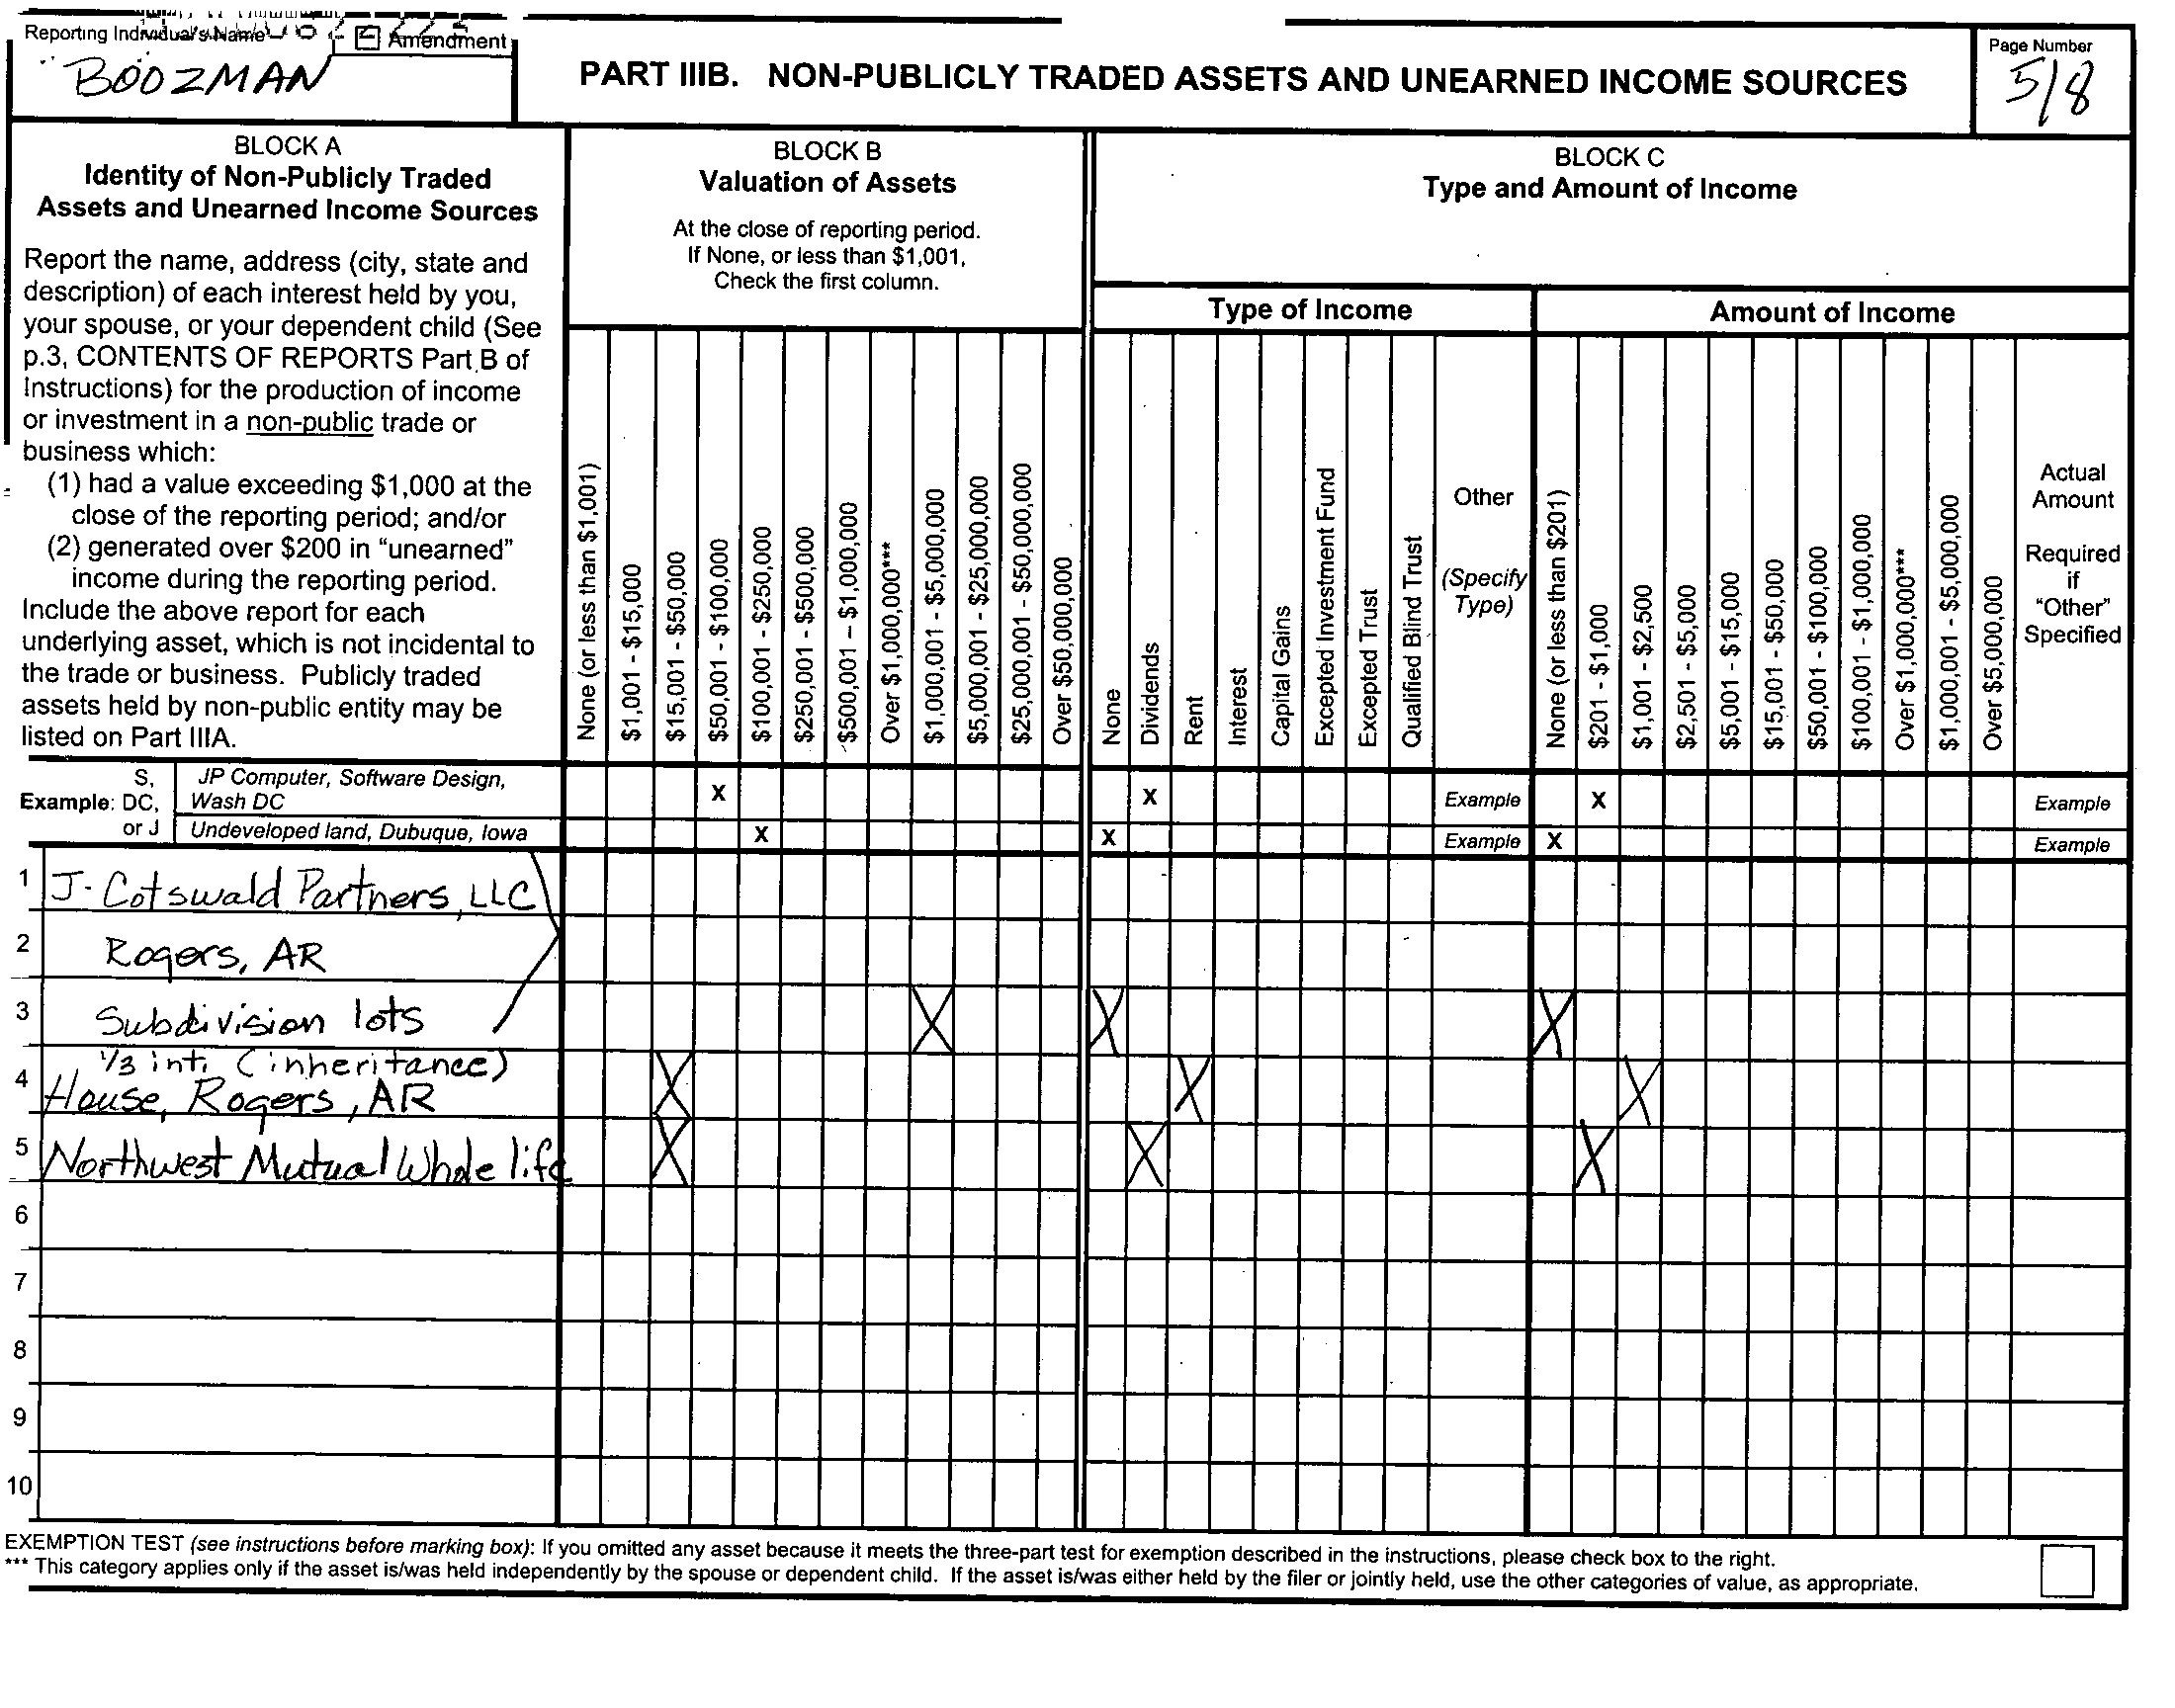 Reporting Individual's Name
Amendment
BOOZMAN
PART IIIB. NON-PUBLICLY TRADED ASSETS AND UNEARNED INCOME SOURCES
Page Number
5/8
BLOCK A
Identity of Non-Publicly Traded
Assets and Unearned Income Sources
Report the name, address (city, state and
description) of each interest held by you,
your spouse, or your dependent child (See
p.3, CONTENTS OF REPORTS Part B of
Instructions) for the production of income
or investment in a non-public trade or
business which:
(1) had a value exceeding $1,000 at the
close of the reporting period; and/or
(2) generated over $200 in “unearned”
income during the reporting period.
Include the above report for each
underlying asset, which is not incidental to
the trade or business. Publicly traded
assets held by non-public entity may be
listed on Part IIIA.
BLOCK B
Valuation of Assets
At the close of reporting period.
If None, or less than $1,001,
Check the first column.
None (or less than $1,001)
$1,001 - $15,000
$15,001 - $50,000
$50,001 - $100,000
$100,001 - $250,000
$250,001 - $500,000
$500,001 – $1,000,000
Over $1,000,000***
$1,000,001 - $5,000,000
$5,000,001 - $25,000,000
$25,000,001 - $50,000,000
Over $50,000,000
BLOCK C
Type and Amount of Income
Type of Income
None
Dividends
Rent
Interest
Capital Gains
Excepted Investment Fund
Excepted Trust
Qualified Blind Trust
Other
(Specify
Type)
Amount of Income
None (or less than $201)
$201 - $1,000
$1,001 - $2,500
$2,501 - $5,000
$5,001 - $15,000
$15,001 - $50,000
$50,001 - $100,000
$100,001 - $1,000,000
Over $1,000,000***
$1,000,001 - $5,000,000
Over $5,000,000
Actual
Amount
Required
if
“Other”
Specified
S,
Example: DC,
or J
JP Computer, Software Design,
Wash DC
X X Example X Example
Undeveloped land, Dubuque, Iowa X X Example X Example
1 J- Cotswald Partners, LLC
2 Rogers, AR
3 Subdivision lots X X X
1/3 int. (inheritance)
4 House, Rogers, AR X X X
5 Northwest Mutual Whole life X X X
6
7
8
9
10
EXEMPTION TEST (see instructions before marking box): If you omitted any asset because it meets the three-part test for exemption described in the instructions, please check box to the right.
*** This category applies only if the asset is/was held independently by the spouse or dependent child. If the asset is/was either held by the filer or jointly held, use the other categories of value, as appropriate.